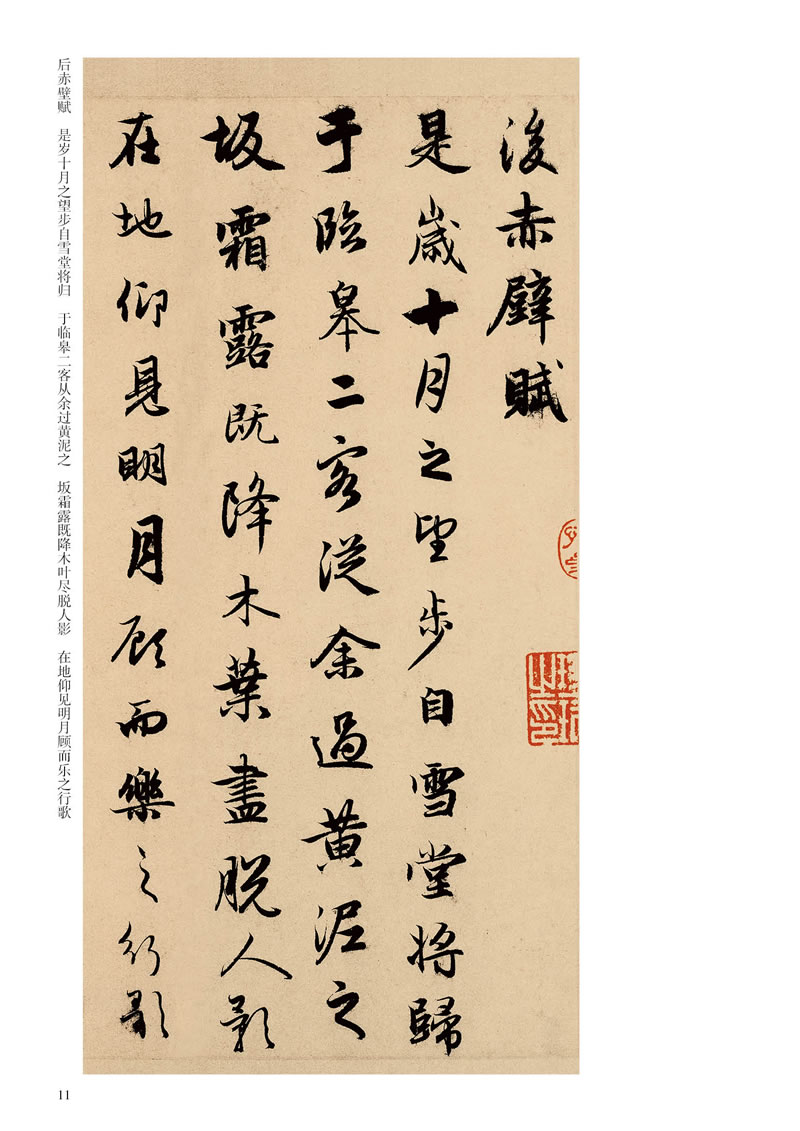 後赤壁賦
是歲十月之望步自雪堂將歸
于臨皋二客從余過黃泥之
坂霜露既降木葉盡脫人影
在地仰見明月顧而樂之行歌
后赤壁赋 是岁十月之望步自雪堂将归 于临皋二客从余过黄泥之 坂霜露既降木叶尽脱人影 在地仰见明月顾而乐之行歌
11